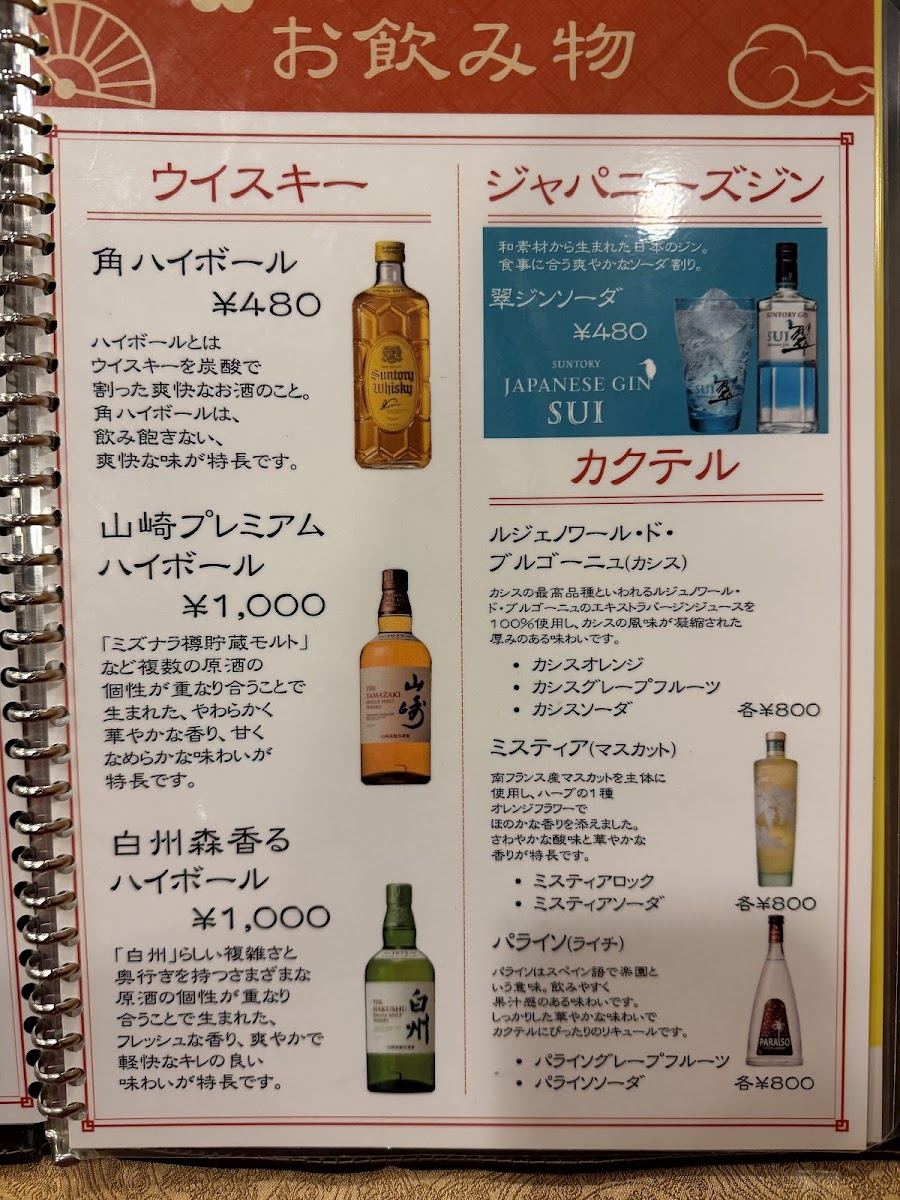 お飲み物
ウイスキー
角ハイボール
¥480
ハイボールとは
ウイスキーを炭酸で
割った爽快なお酒のこと。
角ハイボールは、
飲み飽きない、
爽快な味が特長です。
Suntory
Whisky
山崎プレミアム
ハイボール
¥1,000
「ミズナラ樽貯蔵モルト」
など複数の原酒の
個性が重なり合うことで
生まれた、やわらかく
華やかな香り、甘く
なめらかな味わいが
特長です。
THE
YAMAZAKI
SINGLE MALT
WHISKY
山崎
白州森香る
ハイボール
¥1,000
「白州」らしい複雑さと
奥行きを持つさまざまな
原酒の個性が重なり
合うことで生まれた、
フレッシュな香り、爽やかで
軽快なキレの良い
味わいが特長です。
THE
HAKUSHU
SINGLE MALT
WHISKY
白州
ジャパニーズジン
和素材から生まれた日本のジン。
食事に合う爽やかなソーダ割り。
翠ジンソーダ
¥480
SUNTORY
JAPANESE GIN
SUI
SUI 翠
SUNTORY GIN
SUI 翠
カクテル
ルジェノワール・ド・
ブルゴーニュ(カシス)
カシスの最高品種といわれるルジュノワール・
ド・ブルゴーニュのエキストラバージンジュースを
100%使用し、カシスの風味が凝縮された
厚みのある味わいです。
• カシスオレンジ
• カシスグレープフルーツ
• カシスソーダ 各¥800
ミスティア(マスカット)
南フランス産マスカットを主体に
使用し、ハーブの1種
オレンジフラワーで
ほのかな香りを添えました。
さわやかな酸味と華やかな
香りが特長です。
• ミスティアロック
• ミスティアソーダ 各¥800
パライソ(ライチ)
パラインはスペイン語で楽園と
いう意味。飲みやすく
果汁感のある味わいです。
しっかりした華やかな味わいで
カクテルにぴったりのリキュールです。
PARAISO
• パライソグレープフルーツ
• パライソソーダ 各¥800